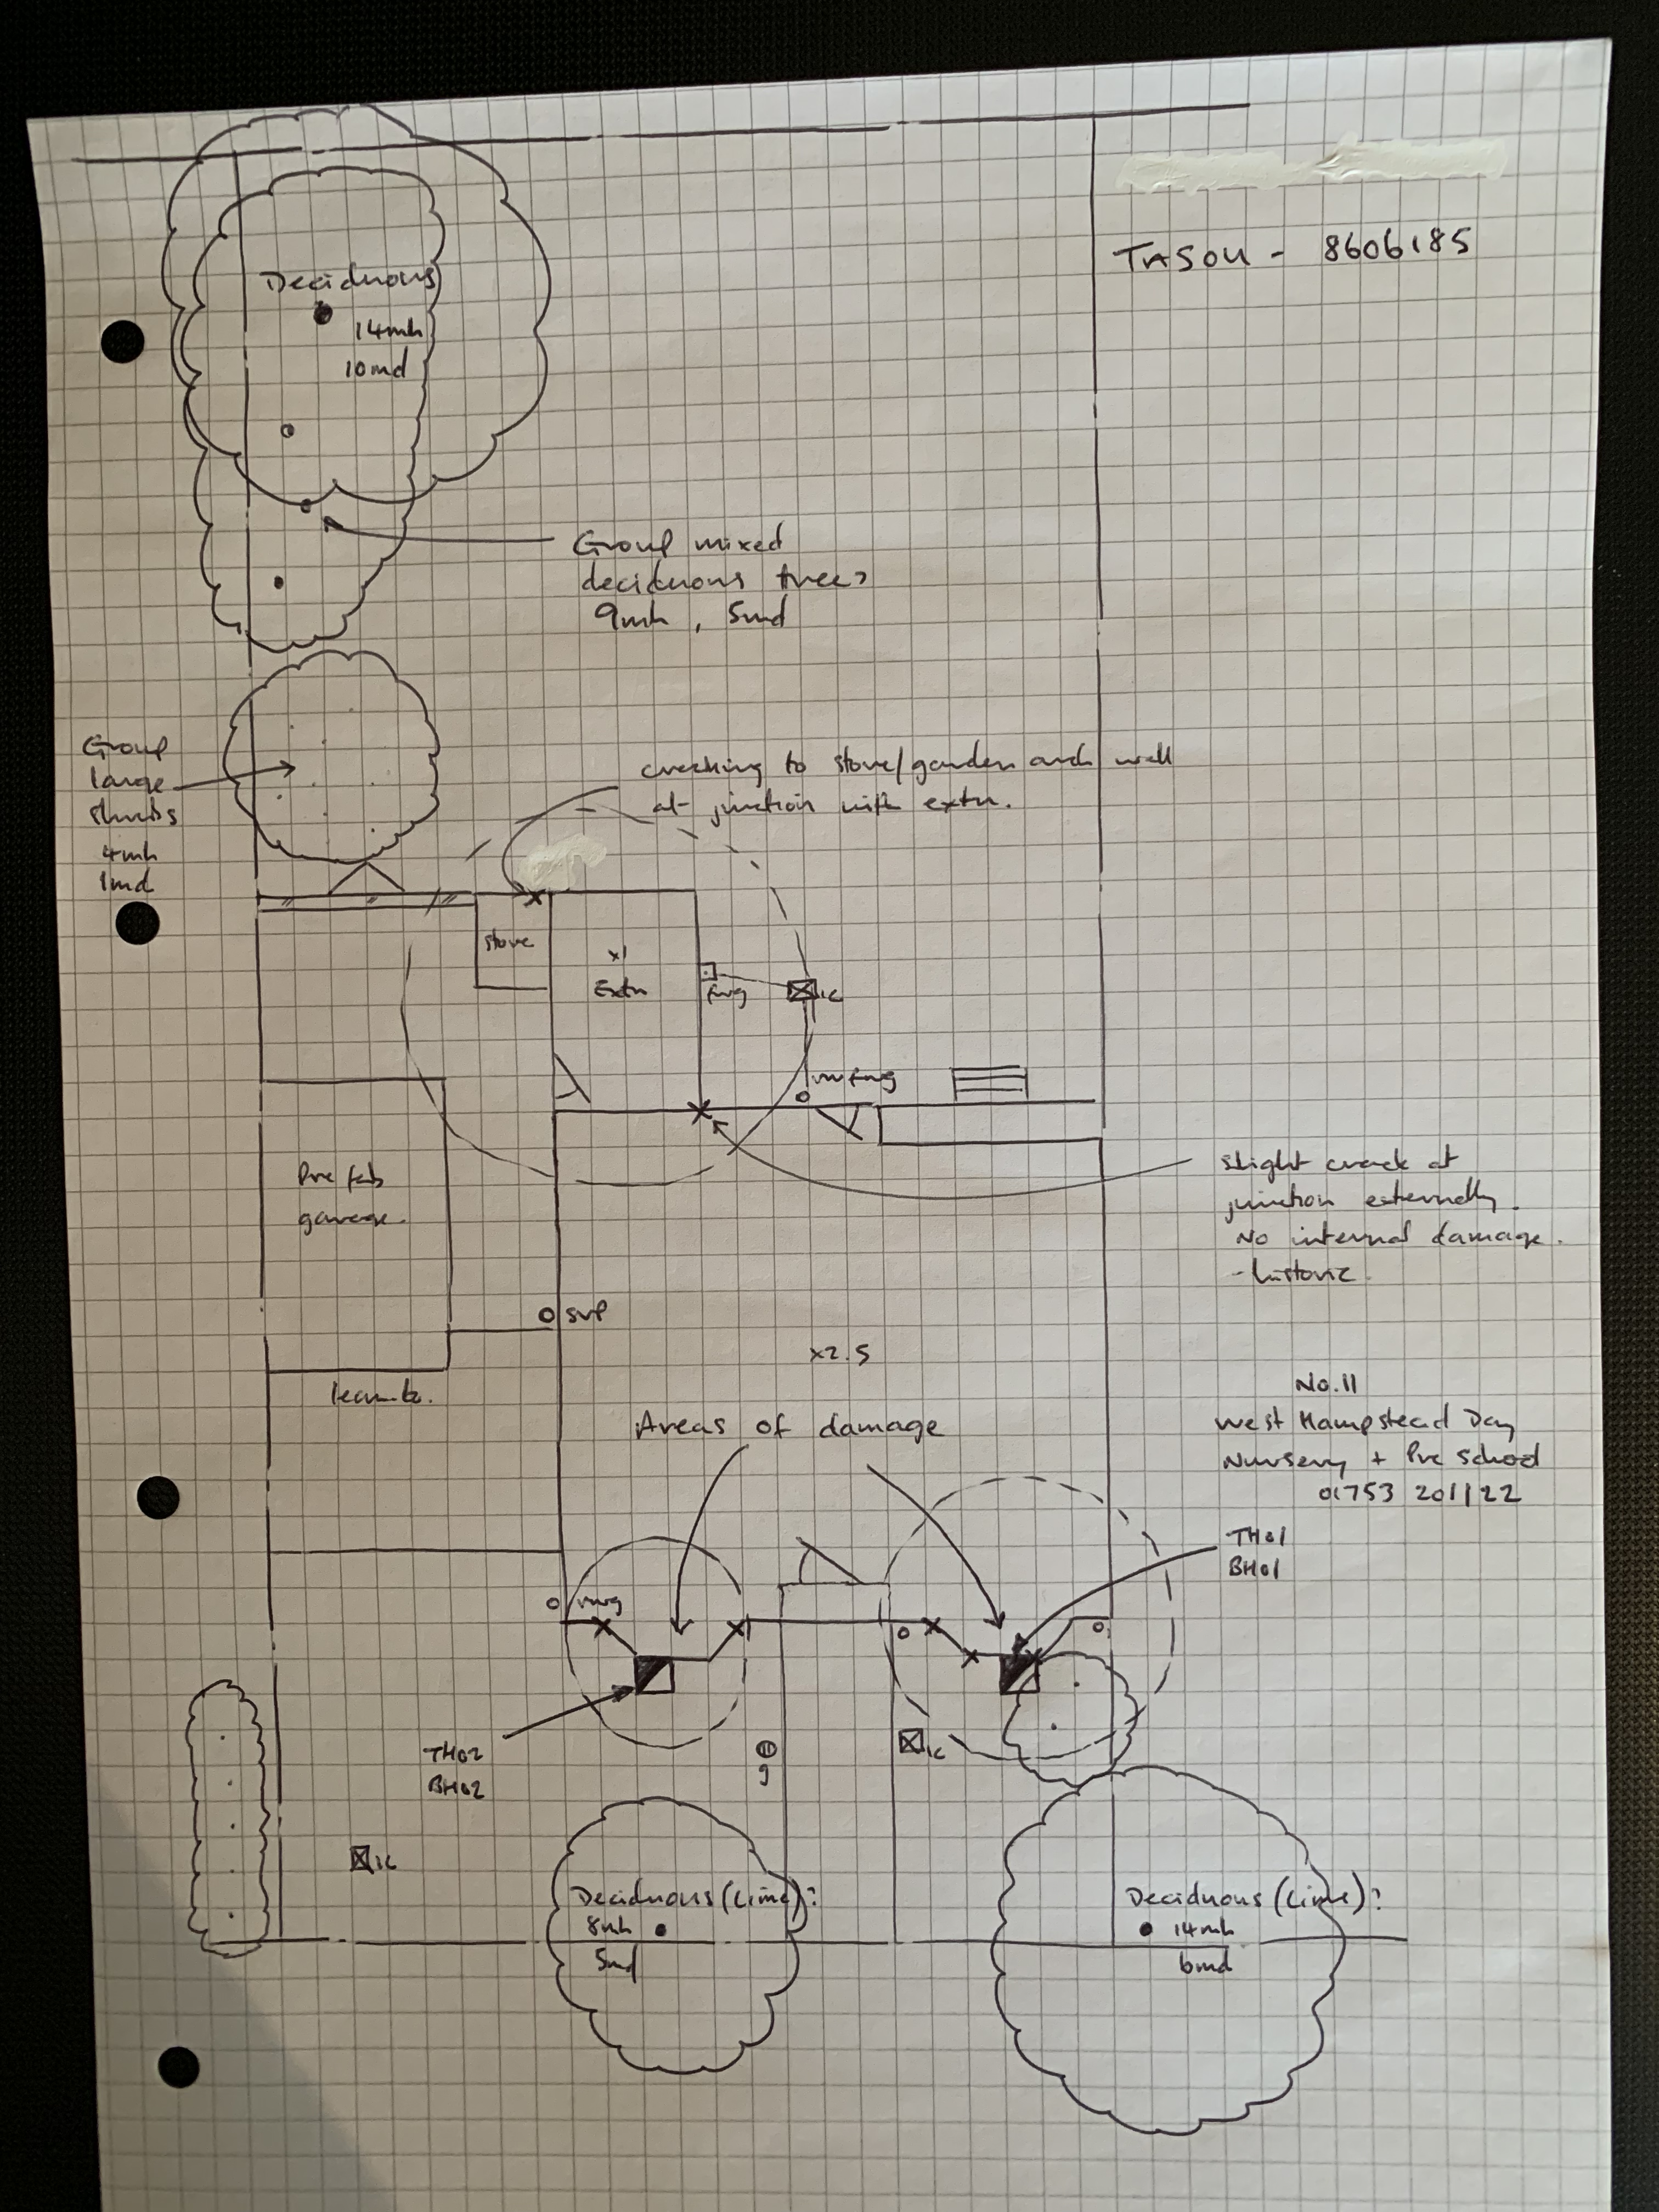 TASOU - 8606185
Deciduous
14mh
10md
Group mixed
deciduous trees
9mh, 5md
Group
large
shrubs
4mh
1md
cracking to store/garden arch wall
at junction with extn.
store
x1
Extn
fwg
IC
rw fwg
Slight crack at
junction externally.
No internal damage.
- historic.
Pre fab
garage.
o svp
x2.5
lean-to.
Areas of damage
No.11
West Hampstead Day
Nursery + Pre School
01753 201122
TH01
BH01
rwg
TH02
BH02
g
IC
IC
Deciduous (Lime)?
8mh
5md
Deciduous (Lime)?
14mh
6md